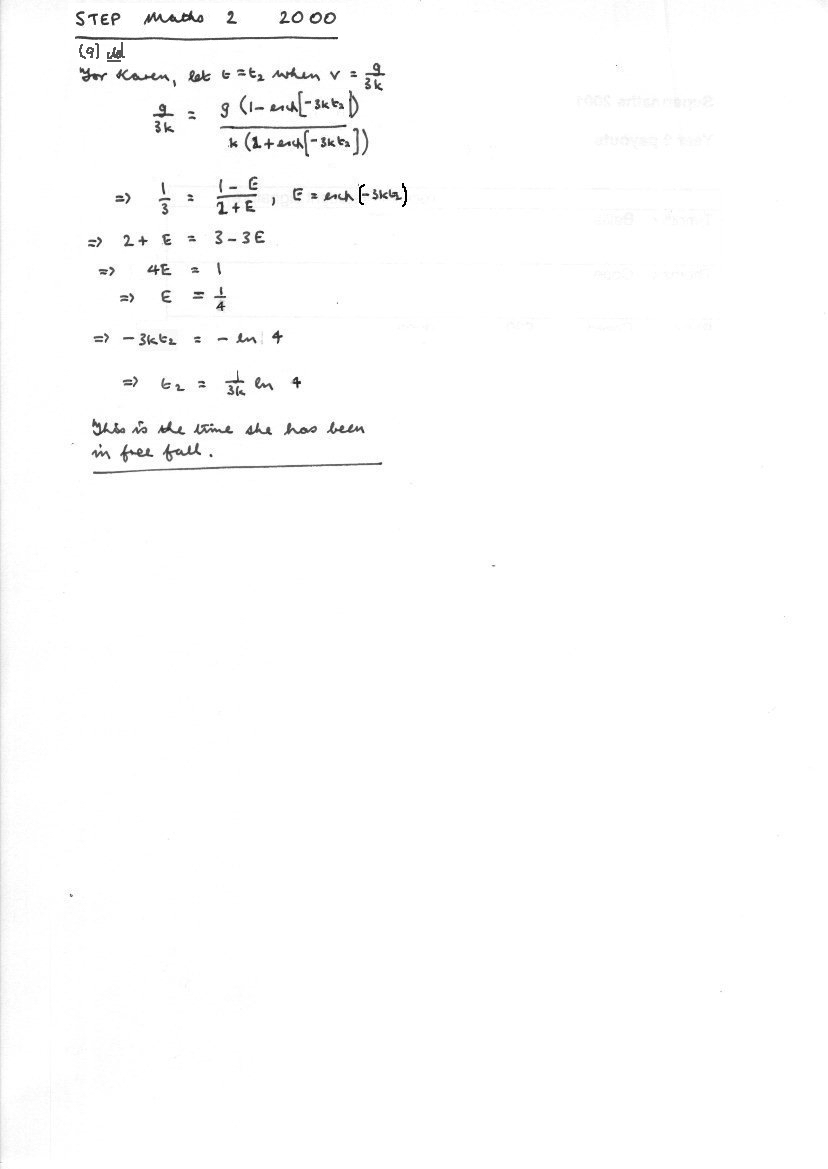 STEP Maths 2 2000
(9) ctd
For Karen, let t = t₂ when v = g/3k
g/3k = g (1 - exp[-3kt₂]) / k (2 + exp[-3kt₂])
=> 1/3 = (1 - E)/(2 + E), E = exp(-3kt₂)
=> 2 + E = 3 - 3E
=> 4E = 1
=> E = 1/4
=> -3kt₂ = - ln 4
=> t₂ = 1/3k ln 4
This is the time she has been
in free fall.